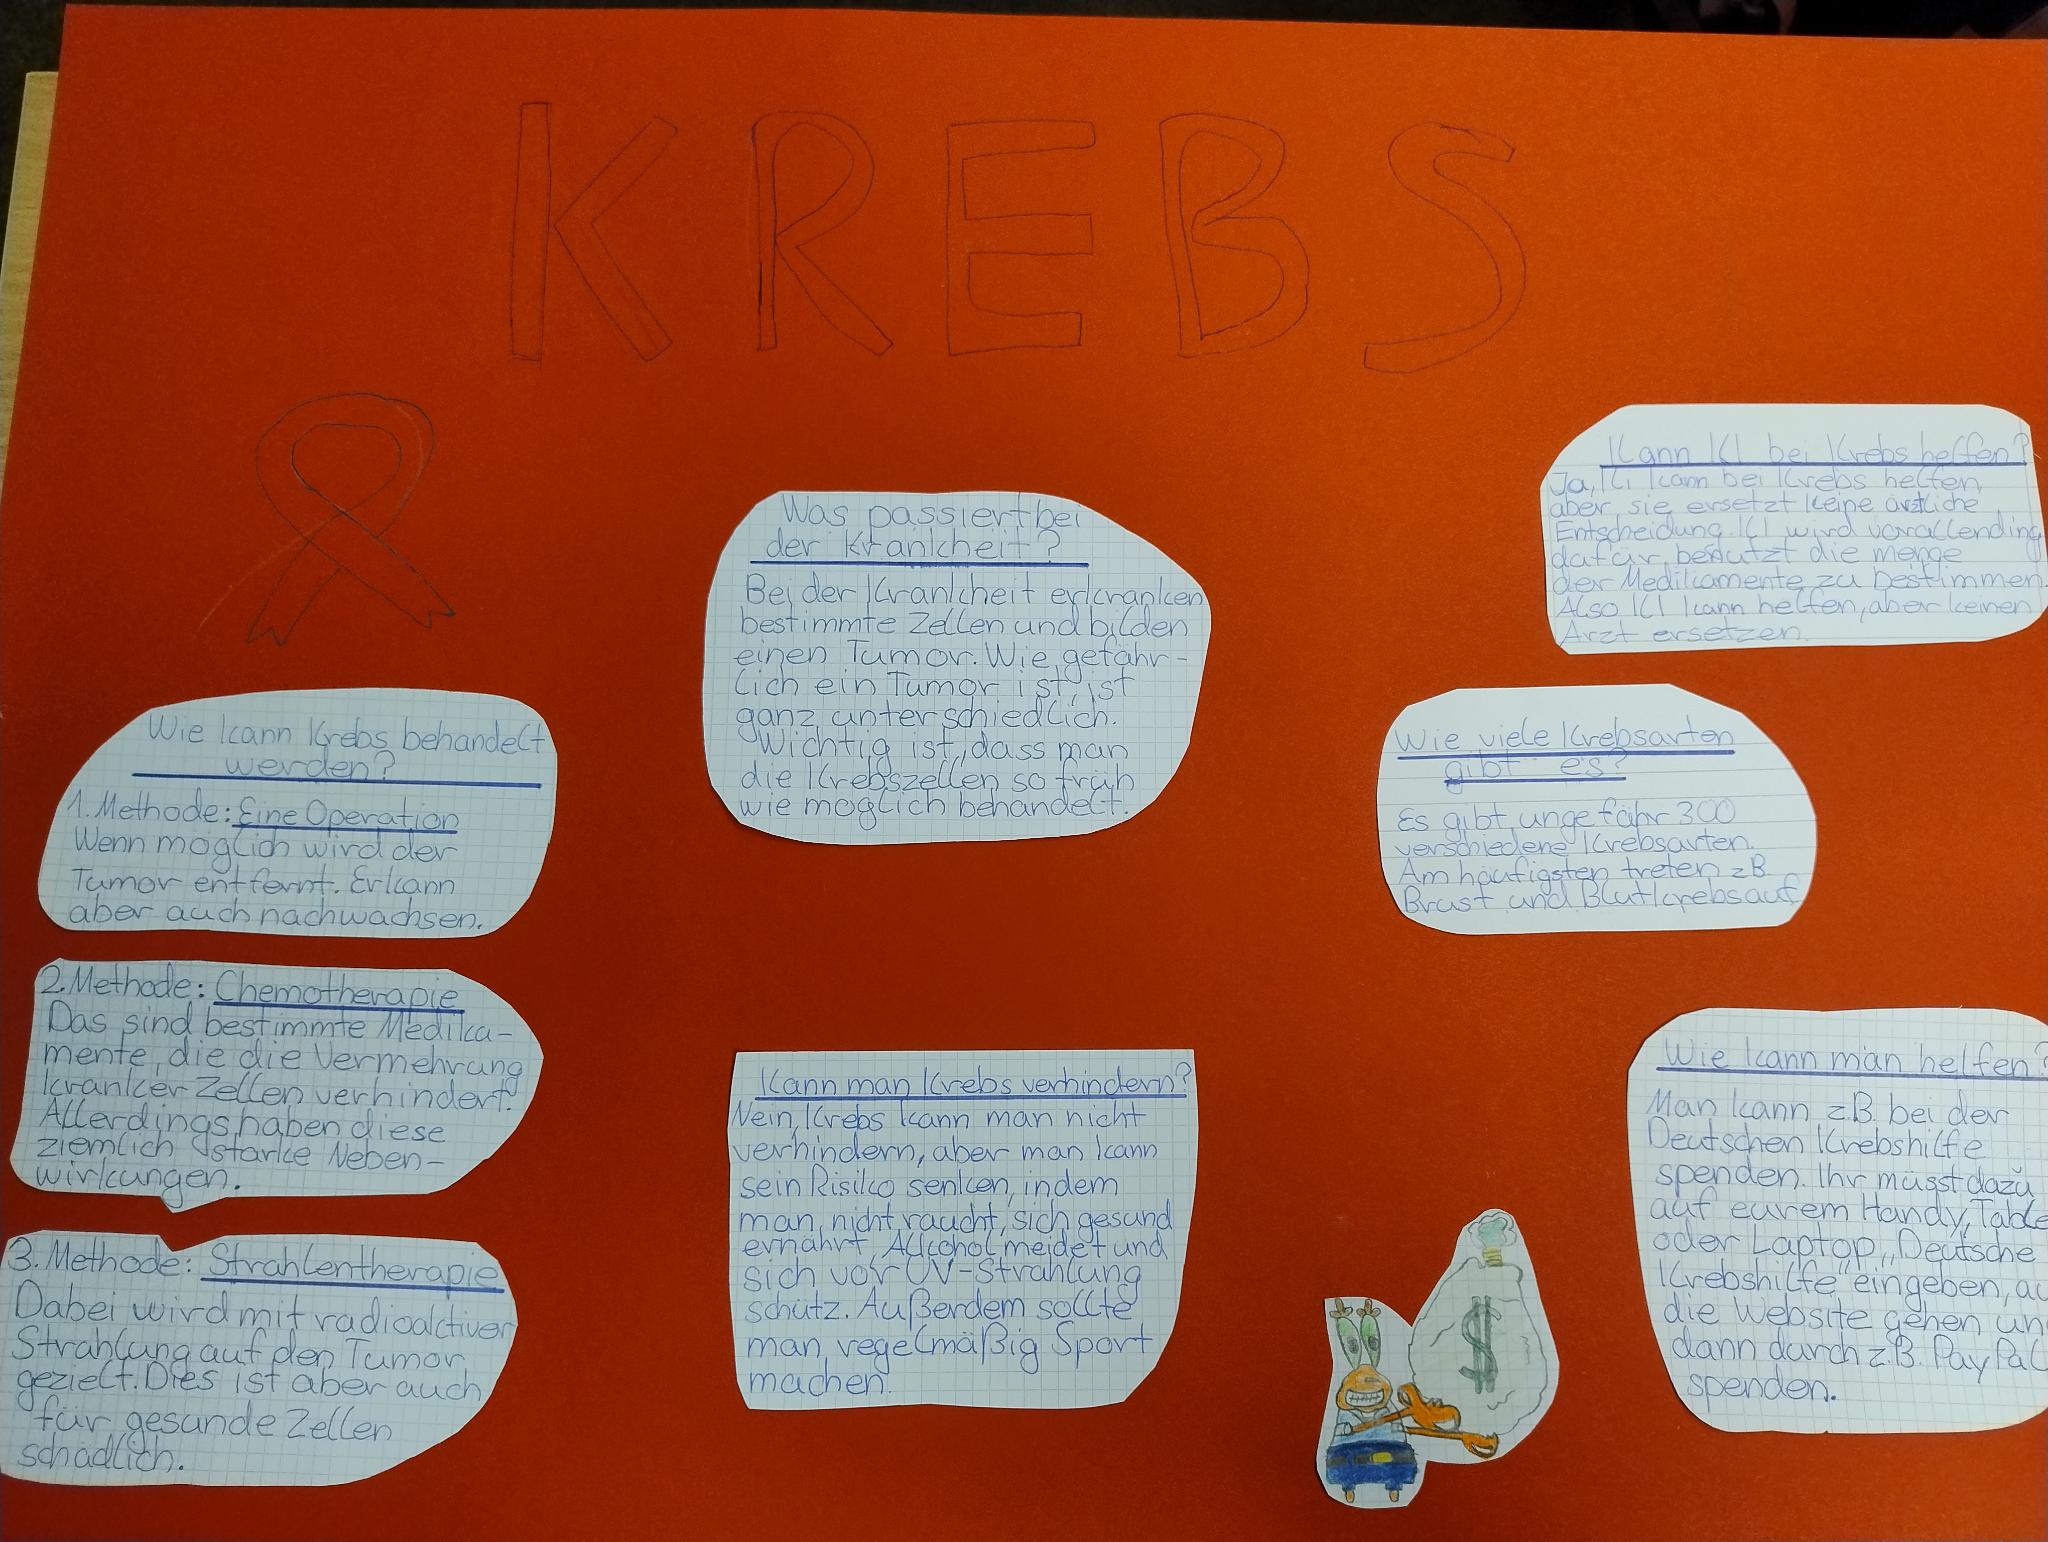 KREBS
Wie kann Krebs behandelt
werden?
1. Methode: Eine Operation
Wenn möglich wird der
Tumor entfernt. Er kann
aber auch nachwachsen.
2. Methode: Chemotherapie
Das sind bestimmte Medika-
mente, die die Vermehrung
kranker Zellen verhindert.
Allerdings haben diese
ziemlich starke Neben-
wirkungen.
3. Methode: Strahlentherapie
Dabei wird mit radioaktiver
Strahlung auf den Tumor
gezielt. Dies ist aber auch
für gesunde Zellen
schädlich.
Was passiert bei
der Krankheit?
Bei der Krankheit erkranken
bestimmte Zellen und bilden
einen Tumor. Wie gefähr-
lich ein Tumor ist, ist
ganz unterschiedlich.
Wichtig ist, dass man
die Krebszellen so früh
wie möglich behandelt.
Kann man Krebs verhindern?
Nein, Krebs kann man nicht
verhindern, aber man kann
sein Risiko senken, indem
man nicht raucht, sich gesund
ernährt, Alkohol meidet und
sich vor UV-Strahlung
schütz. Außerdem sollte
man regelmäßig Sport
machen.
Kann KI bei Krebs helfen?
Ja, KI kann bei Krebs helfen
aber sie ersetzt keine ärztliche
Entscheidung. KI wird vorallending
dafür benutzt die menge
der Medikamente zu bestimmen.
Also KI kann helfen, aber keinen
Arzt ersetzen.
Wie viele Krebsarten
gibt es?
Es gibt ungefähr 300
verschiedene Krebsarten.
Am häufigsten treten z.B.
Brust und Blutkrebs auf
Wie kann man helfen?
Man kann z.B. bei der
Deutschen Krebshilfe
spenden. Ihr müsst dazu
auf eurem Handy,
oder Laptop „Deutsche
Krebshilfe" eingeben,
die Website gehen
dann durch z.B. PayPal
spenden.
$